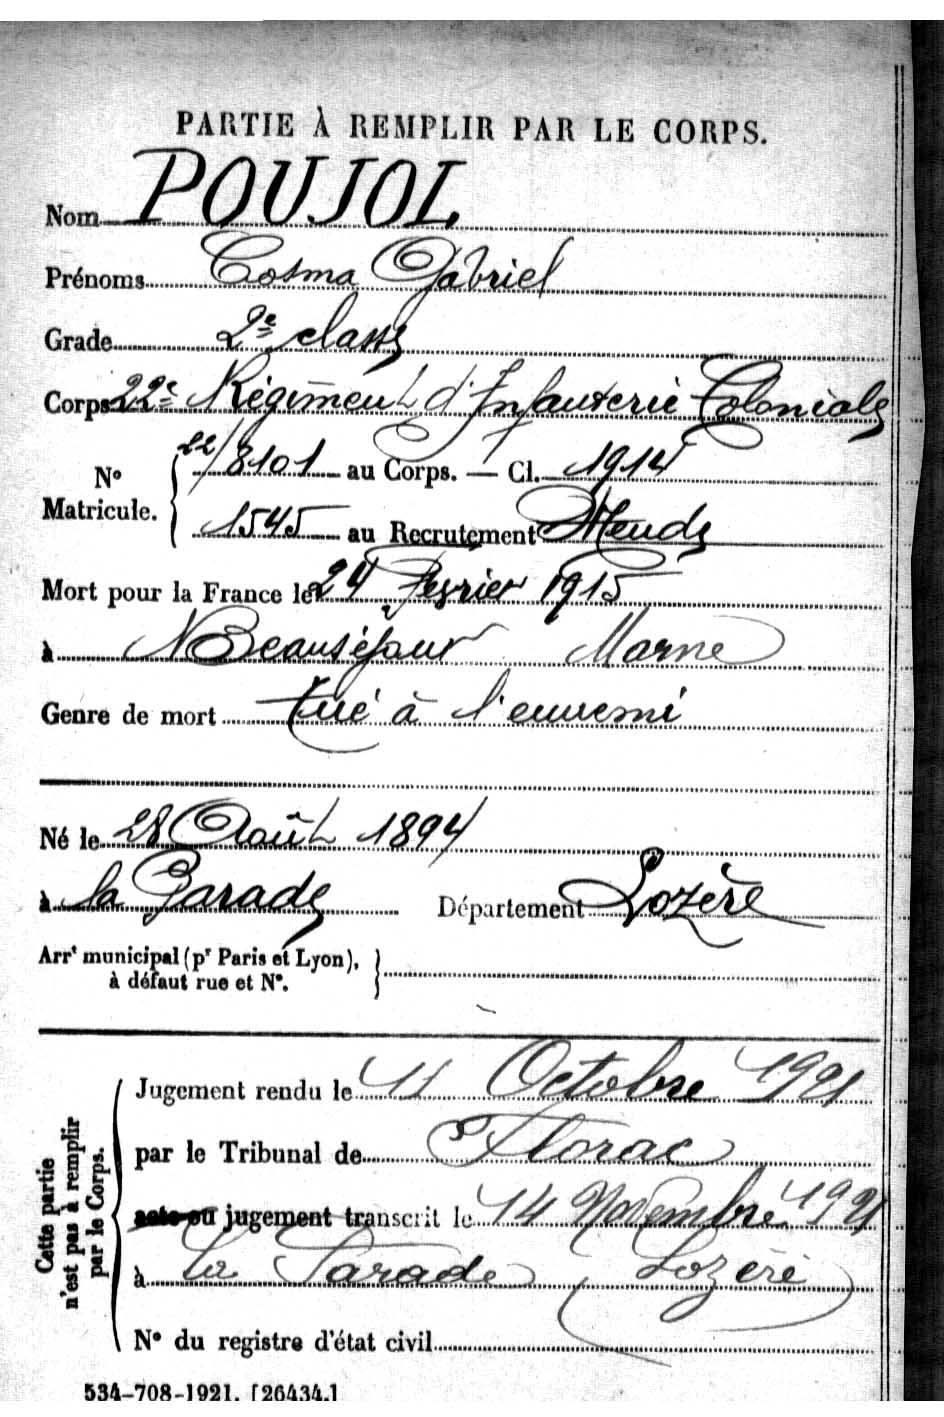 PARTIE À REMPLIR PAR LE CORPS.
Nom POUJOL
Prénoms Cosma Gabriel
Grade 2e classe
Corps 22e Régiment d'Infanterie Coloniale
N° Matricule. { 22/8101 au Corps. — Cl. 1914
1545 au Recrutement Mende
Mort pour la France le 24 Fevrier 1915
à Beauséjour Marne
Genre de mort tué à l'ennemi
Né le 28 Août 1894
à la Parade Département Lozère
Arrt municipal (pr Paris et Lyon),
à défaut rue et N°.
Cette partie n'est pas à remplir par le Corps.
Jugement rendu le 11 Octobre 1921
par le Tribunal de Florac
acte ou jugement transcrit le 14 Novembre 1921
à La Parade (Lozère)
N° du registre d'état civil
534-708-1921. [26434.]